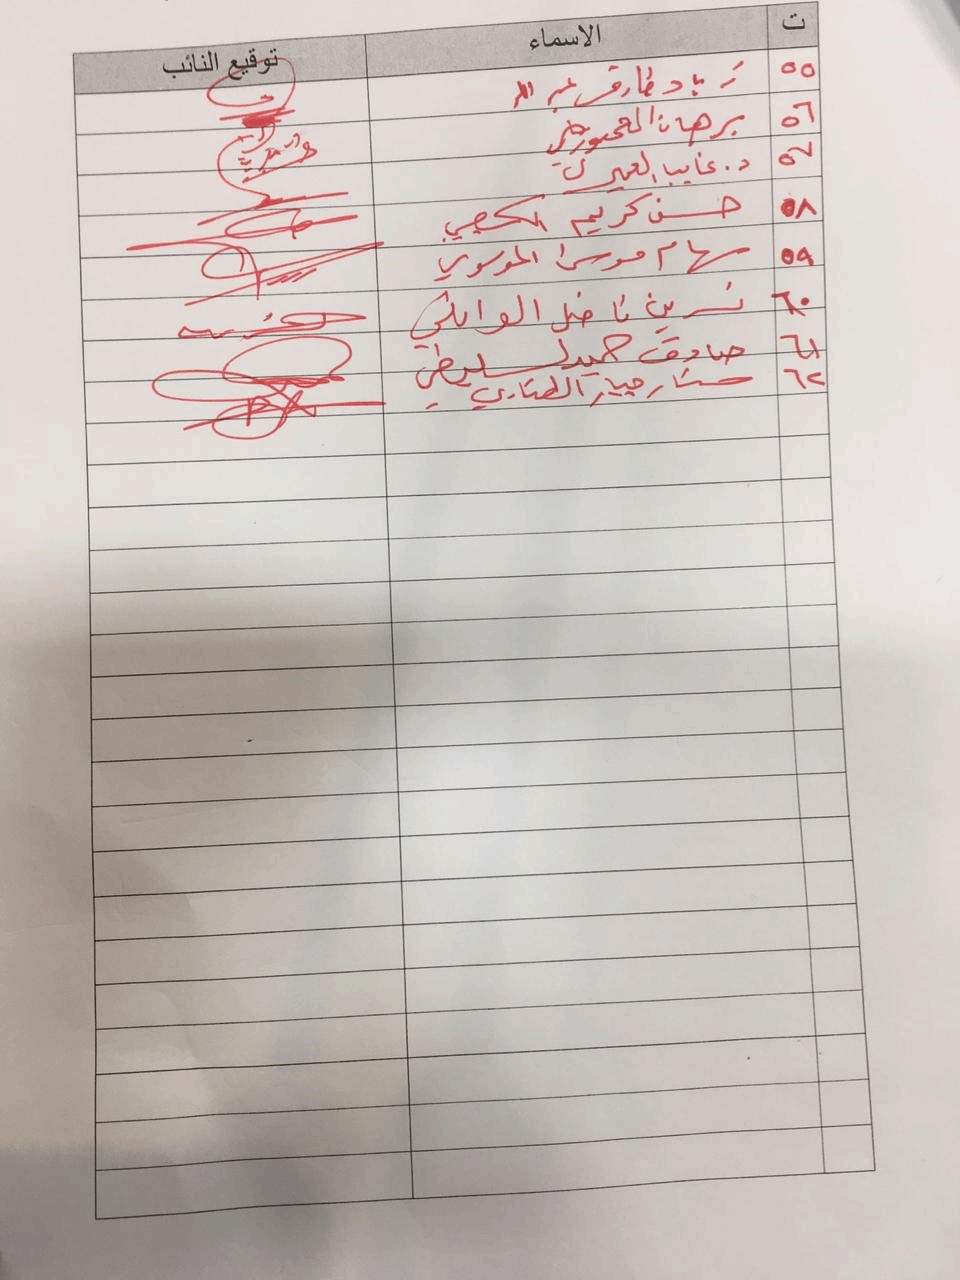 ت الاسماء توقيع النائب
٥٥ زياد طارق عبد الله
٥٦ برهان المعموري
٥٧ د. غايب العميري
٥٨ حسن كريم الكعبي
٥٩ سهام موسى الموسوي
٦٠ نسرين فاضل الوائلي
٦١ صادق حميد السليطي
٦٢ ستار جبار العتابي